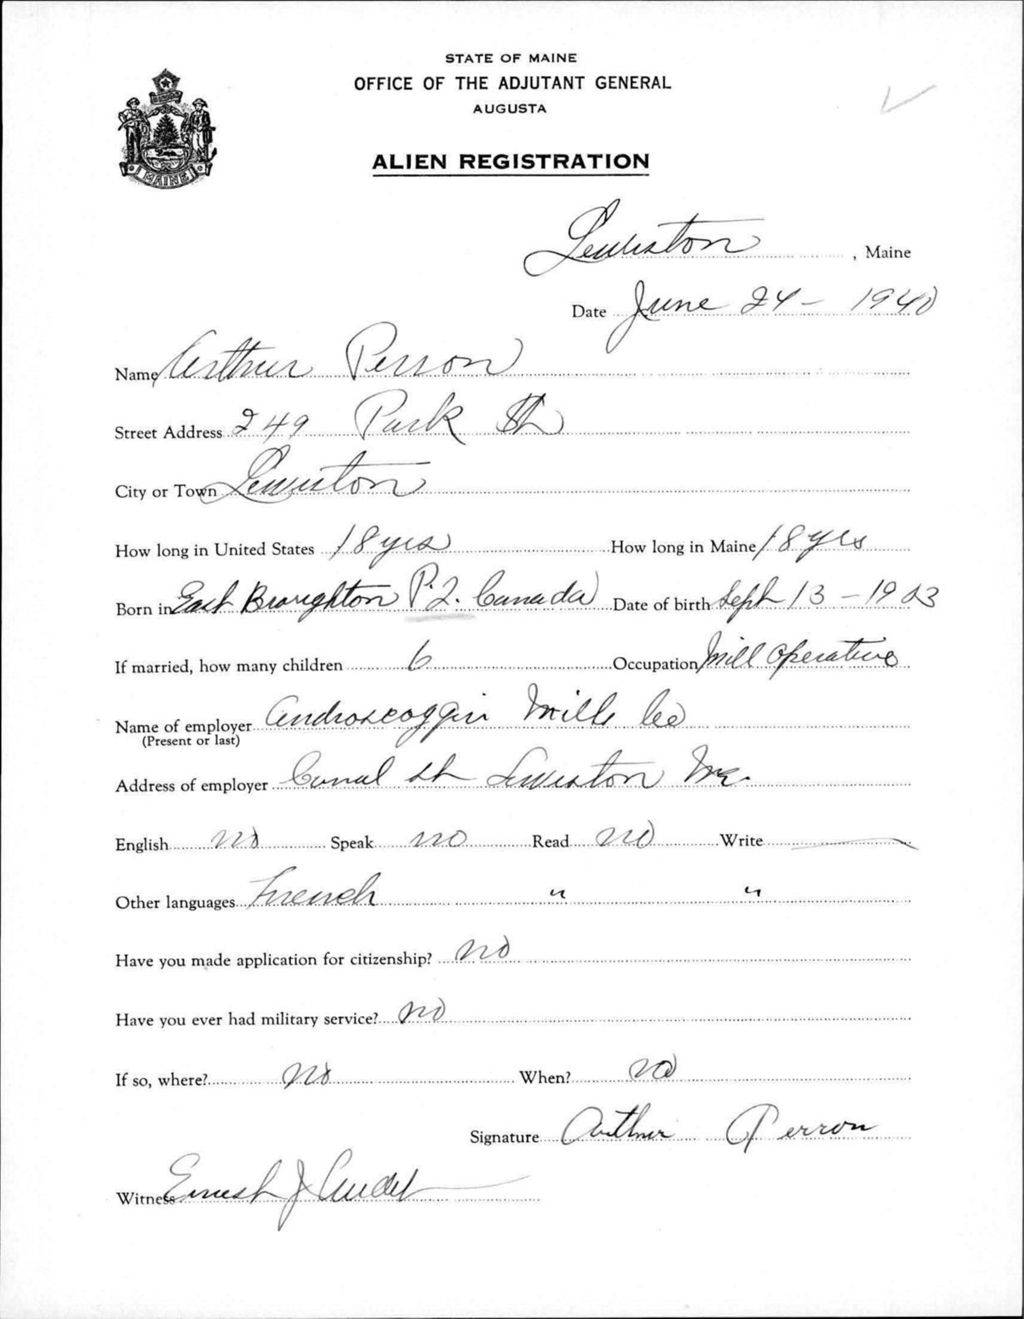 STATE OF MAINE
OFFICE OF THE ADJUTANT GENERAL
AUGUSTA
MAINE
ALIEN REGISTRATION
Lewiston, Maine
Date June 24 - 1940
Name Arthur Perron
Street Address 249 Park St
City or Town Lewiston
How long in United States 18 yrs How long in Maine 18 yrs
Born in East Broughton P.Q. Canada Date of birth Sept 13 - 1903
If married, how many children 6 Occupation Mill Operative
Name of employer Androscoggin Mills Co
(Present or last)
Address of employer Canal St Lewiston Me.
English no Speak no Read no Write —
Other languages French " "
Have you made application for citizenship? no
Have you ever had military service? no
If so, where? no When? no
Signature Arthur Perron
Witness Ernest J Audet